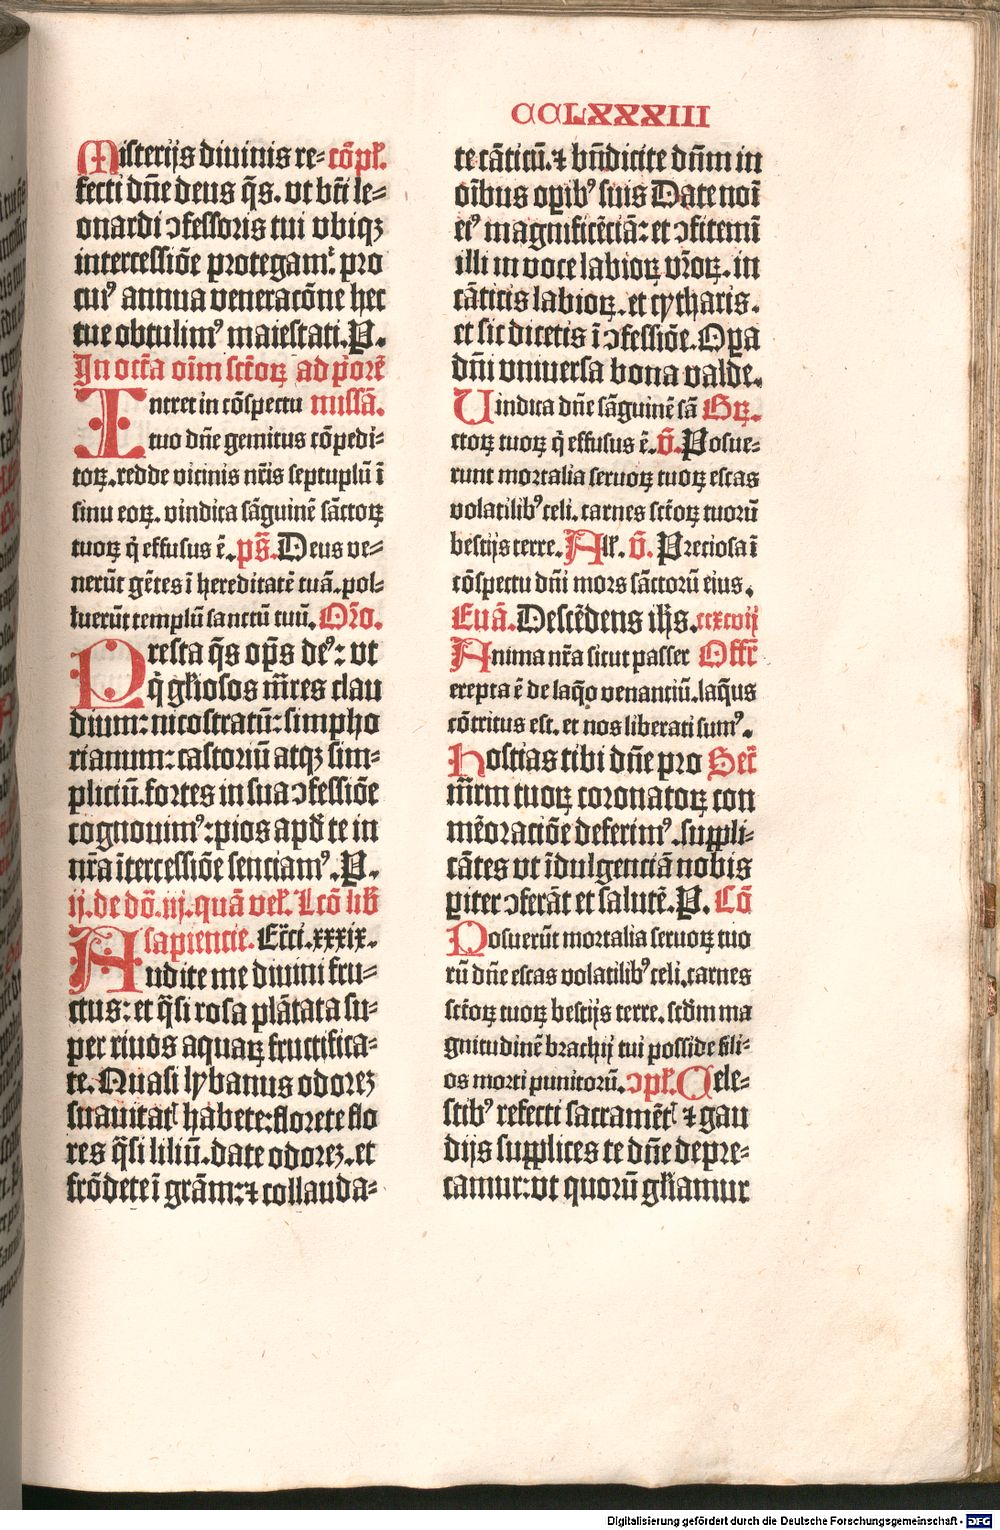 CCLXXXIII
Misterijs diuinis re- cō̄pl̄.
fecti dn̄e deus q̄s. vt bt̄i le-
onardi ꝯfessoris tui vbiqꝫ
intercessiōe protegam̄. pro
cuiꝰ annua veneracōne hec
tue obtulimꝰ maiestati. P.
In oct̄a oīm sct̄oꝝ ad pͥorē
Intret in cōspectu missā.
tuo dn̄e gemitus cōpedi-
toꝝ. redde vicinis nr̄is septuplū ī
sinu eoꝝ. vindica sāguinē sāctoꝝ
tuoꝝ q̇ effusus ē. pš. Deus ve-
nerūt gētes ī hereditatē tuā. pol-
luerūt templū sanctū tuū. Or̄o.
Presta q̄s op̄s deꝰ: vt
q̇ gl̄iosos m̄res clau
dium: nicostratū: simpho
rianum: castoriū atqꝫ sim-
pliciū. fortes in sua ꝯfessiōe
cognouimꝰ: pios apd̄ te in
nr̄a ītercessiōe senciamꝰ. P.
ij. de dō. iij. quā vel̄. Lcō lib̄
sapiencie. Ecc̄i. xxxix.
Audite me diuini fru-
ctus: et q̄si rosa plātata su-
per riuos aquaꝝ fructifica-
te. Quasi lybanus odorez
suauitatꝭ habete: florete flo
res q̄si liliū. date odorez. et
frōdete ī grām: ⁊ collauda-
te cāticū. ⁊ bn̄dicite dn̄m in
oībus opibꝰ suis Date noī
eiꝰ magnificēciā: et ꝯfitemī
illi in voce labioꝝ vr̄oꝝ. in
cāticis labioꝝ. et cytharis.
et sic dicetis ī ꝯfessiōe. Oꝑa
dn̄i vniuersa bona valde.
Vindica dn̄e sāguinē sā Gꝝ.
ctoꝝ tuoꝝ q̇ effusus ē. v̄. Posue-
runt mortalia seruoꝝ tuoꝝ escas
volatilibꝰ celi. carnes sct̄oꝝ tuorū
bestijs terre. All̄. v̄. Preciosa ī
cōspectu dn̄i mors sāctorū eius.
Euā. Descēdens ih̄s. ccxcvij
Anima nr̄a sicut passer Offr̄
erepta ē de laq̇o venanciū. laq̄us
cōtritus est. et nos liberati sumꝰ.
Hostias tibi dn̄e pro Secr̄
m̄rm tuoꝝ coronatoꝝ con
mēoraciōe deferimꝰ. suppli-
cātes vt īdulgenciā nobis
ꝑiter ꝯferāt et salutē. P. Cō
Posuerūt mortalia seruoꝝ tuo
rū dn̄e escas volatilibꝰ celi. carnes
sct̄oꝝ tuoꝝ bestijs terre. scdm̄ ma
gnitudinē brachij tui posside fili-
os morti punitorū. ꝯpl̄. Cele-
stibꝰ refecti sacramētꝭ ⁊ gau
dijs supplices te dn̄e depre-
camur: vt quorū gl̄iamur
Digitalisierung gefördert durch die Deutsche Forschungsgemeinschaft - DFG